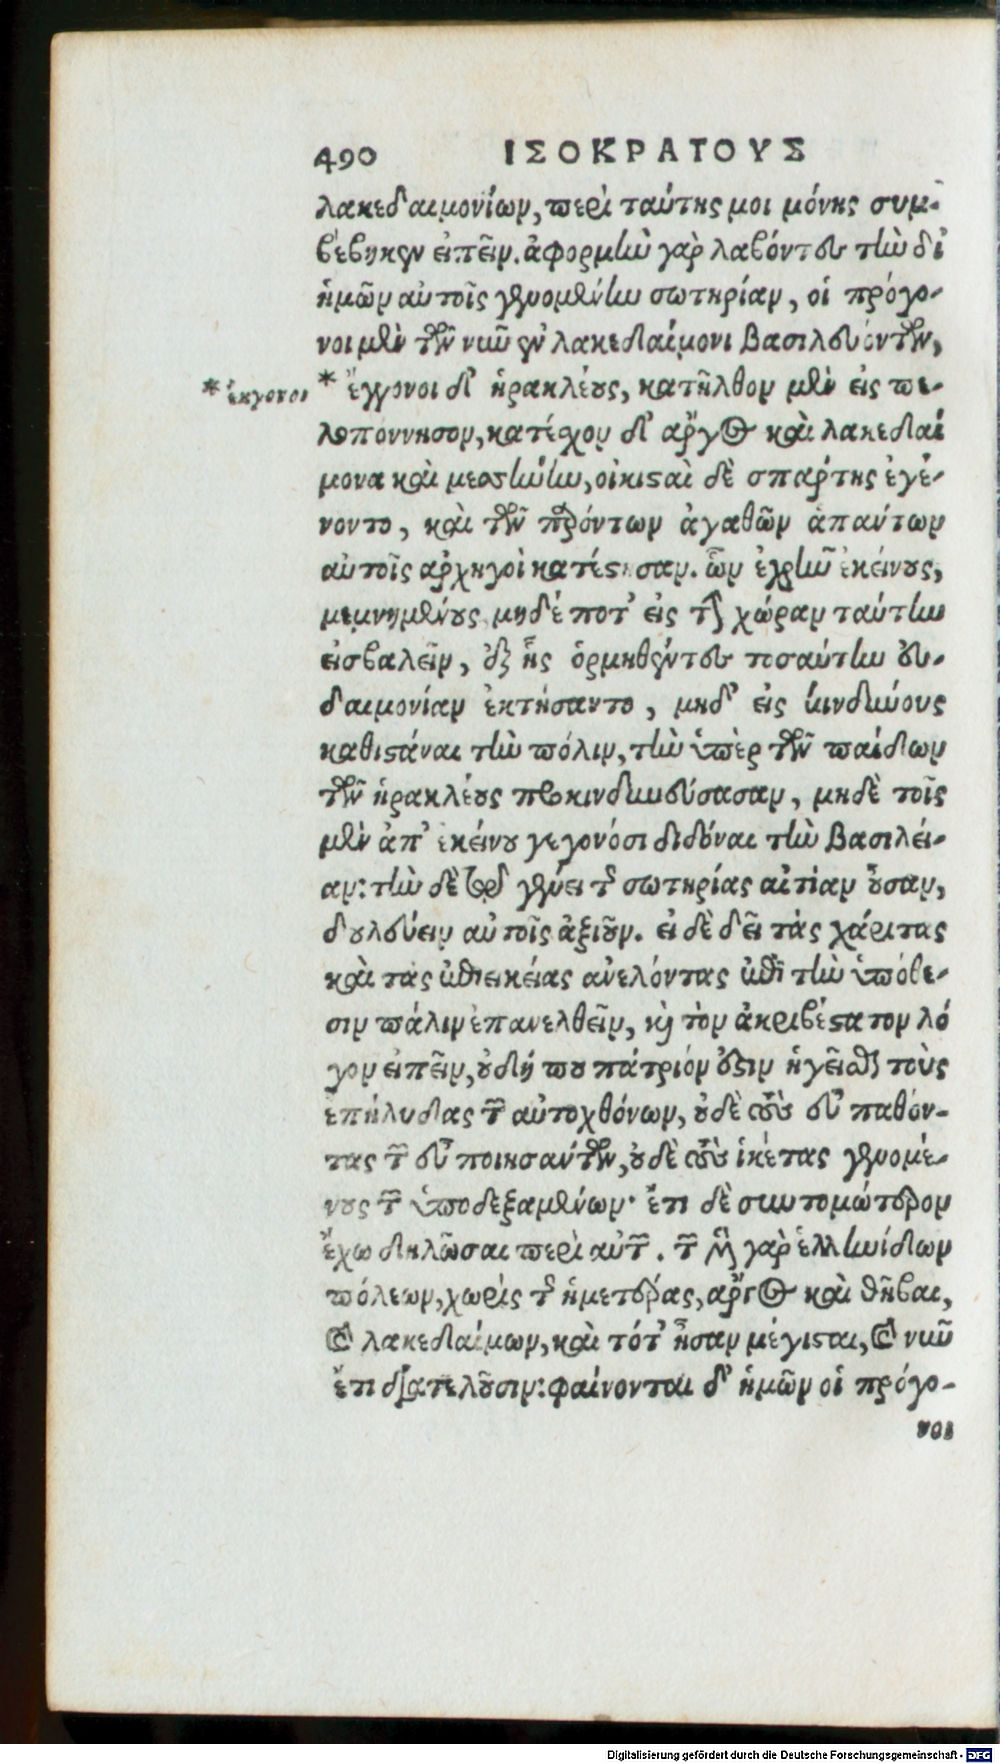 490 ΙΣΟΚΡΑΤΟΥΣ
λακεδαιμονίων, περὶ ταύτης μοι μόνης συμ-
βέβηκεν εἰπεῖν. ἀφορμὴν γὰρ λαβόντες τὴν δι'
ἡμῶν αὐτοῖς γενομένην σωτηρίαν, οἱ πρόγο-
νοι μὲν τῶν νῦν ἐν λακεδαίμονι βασιλευόντων,
* ἔκγονοι * ἔγγονοι δ' ἡρακλέους, κατῆλθον μὲν εἰς πε-
λοπόννησον, κατέσχον δ' ἄργος καὶ λακεδαί
μονα καὶ μεσσήνην, οἰκισταὶ δὲ σπάρτης ἐγέ-
νοντο, καὶ τῶν παρόντων ἀγαθῶν ἁπάντων
αὐτοῖς ἀρχηγοὶ κατέστησαν. ὧν ἐχρῆν ἐκείνους,
μεμνημένους μηδέποτ' εἰς τὴν χώραν ταύτην
εἰσβαλεῖν, ἐξ ἧς ὁρμηθέντες τοσαύτην εὐ-
δαιμονίαν ἐκτήσαντο, μηδ' εἰς κινδύνους
καθιστάναι τὴν πόλιν, τὴν ὑπὲρ τῶν παίδων
τῶν ἡρακλέους προκινδυνεύσασαν, μηδὲ τοῖς
μὲν ἀπ' ἐκείνου γεγονόσι διδόναι τὴν βασιλεί-
αν: τὴν δὲ τῷ γένει τῆς σωτηρίας αἰτίαν οὖσαν,
δουλεύειν αὐτοῖς ἀξιοῦν. εἰ δὲ δεῖ τὰς χάριτας
καὶ τὰς ἐπιεικείας ἀνελόντας ἐπὶ τὴν ὑπόθε-
σιν πάλιν ἐπανελθεῖν, καὶ τὸν ἀκριβέστατον λό
γον εἰπεῖν, οὐ δή που πάτριόν ἐστιν ἡγεῖσθαι τοὺς
ἐπήλυδας τῶν αὐτοχθόνων, οὐδὲ τοὺς εὖ παθόν-
τας τῶν εὖ ποιησάντων, οὐδὲ τοὺς ἱκέτας γενομέ-
νους τῶν ὑποδεξαμένων· ἔτι δὲ συντομώτερον
ἔχω δηλῶσαι περὶ αὐτῶν. τῶν μὲν γὰρ ἑλληνίδων
πόλεων, χωρὶς τῆς ἡμετέρας, ἄργος καὶ θῆβαι,
καὶ λακεδαίμων, καὶ τότ' ἦσαν μέγισται, καὶ νῦν
ἔτι διατελοῦσιν: φαίνονται δ' ἡμῶν οἱ πρόγο-
νοι
Digitalisierung gefördert durch die Deutsche Forschungsgemeinschaft - DFG